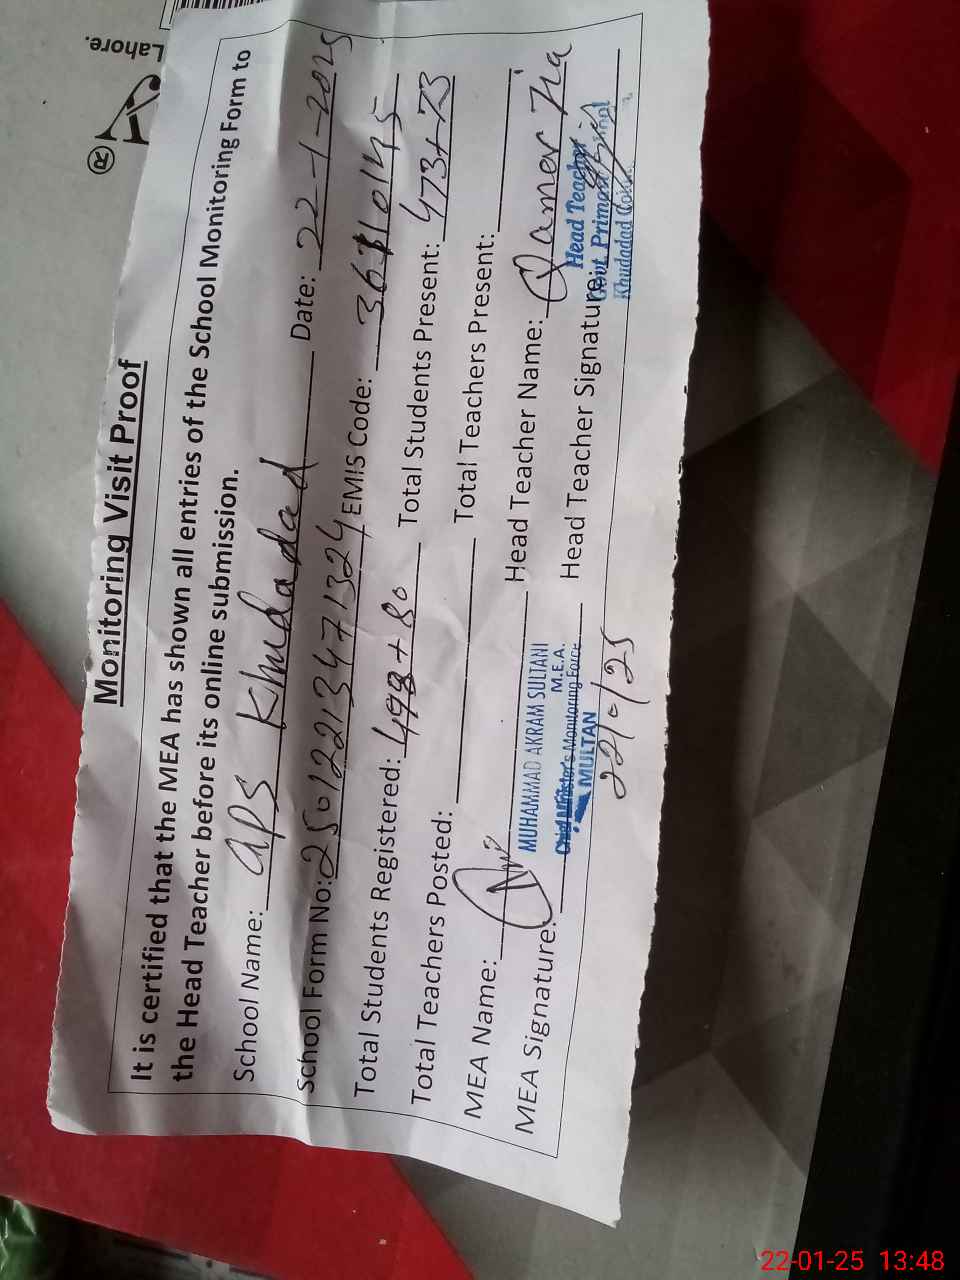 Lahore.
®
Monitoring Visit Proof
It is certified that the MEA has shown all entries of the School Monitoring Form to
the Head Teacher before its online submission.
School Name: GPS Khudadad Date: 22-1-2025
School Form No: 25012213471324 EMIS Code: 36310145
Total Students Registered: 498+80 Total Students Present: 473+73
Total Teachers Posted: Total Teachers Present:
MEA Name: Head Teacher Name: Qamer Zia
MUHAMMAD AKRAM SULTANI
M.E.A.
Chief Minister's Monitoring Force
MULTAN
MEA Signature: Head Teacher Signature:
Head Teacher
Govt. Primary School
Khudadad
22-01-25 13:48